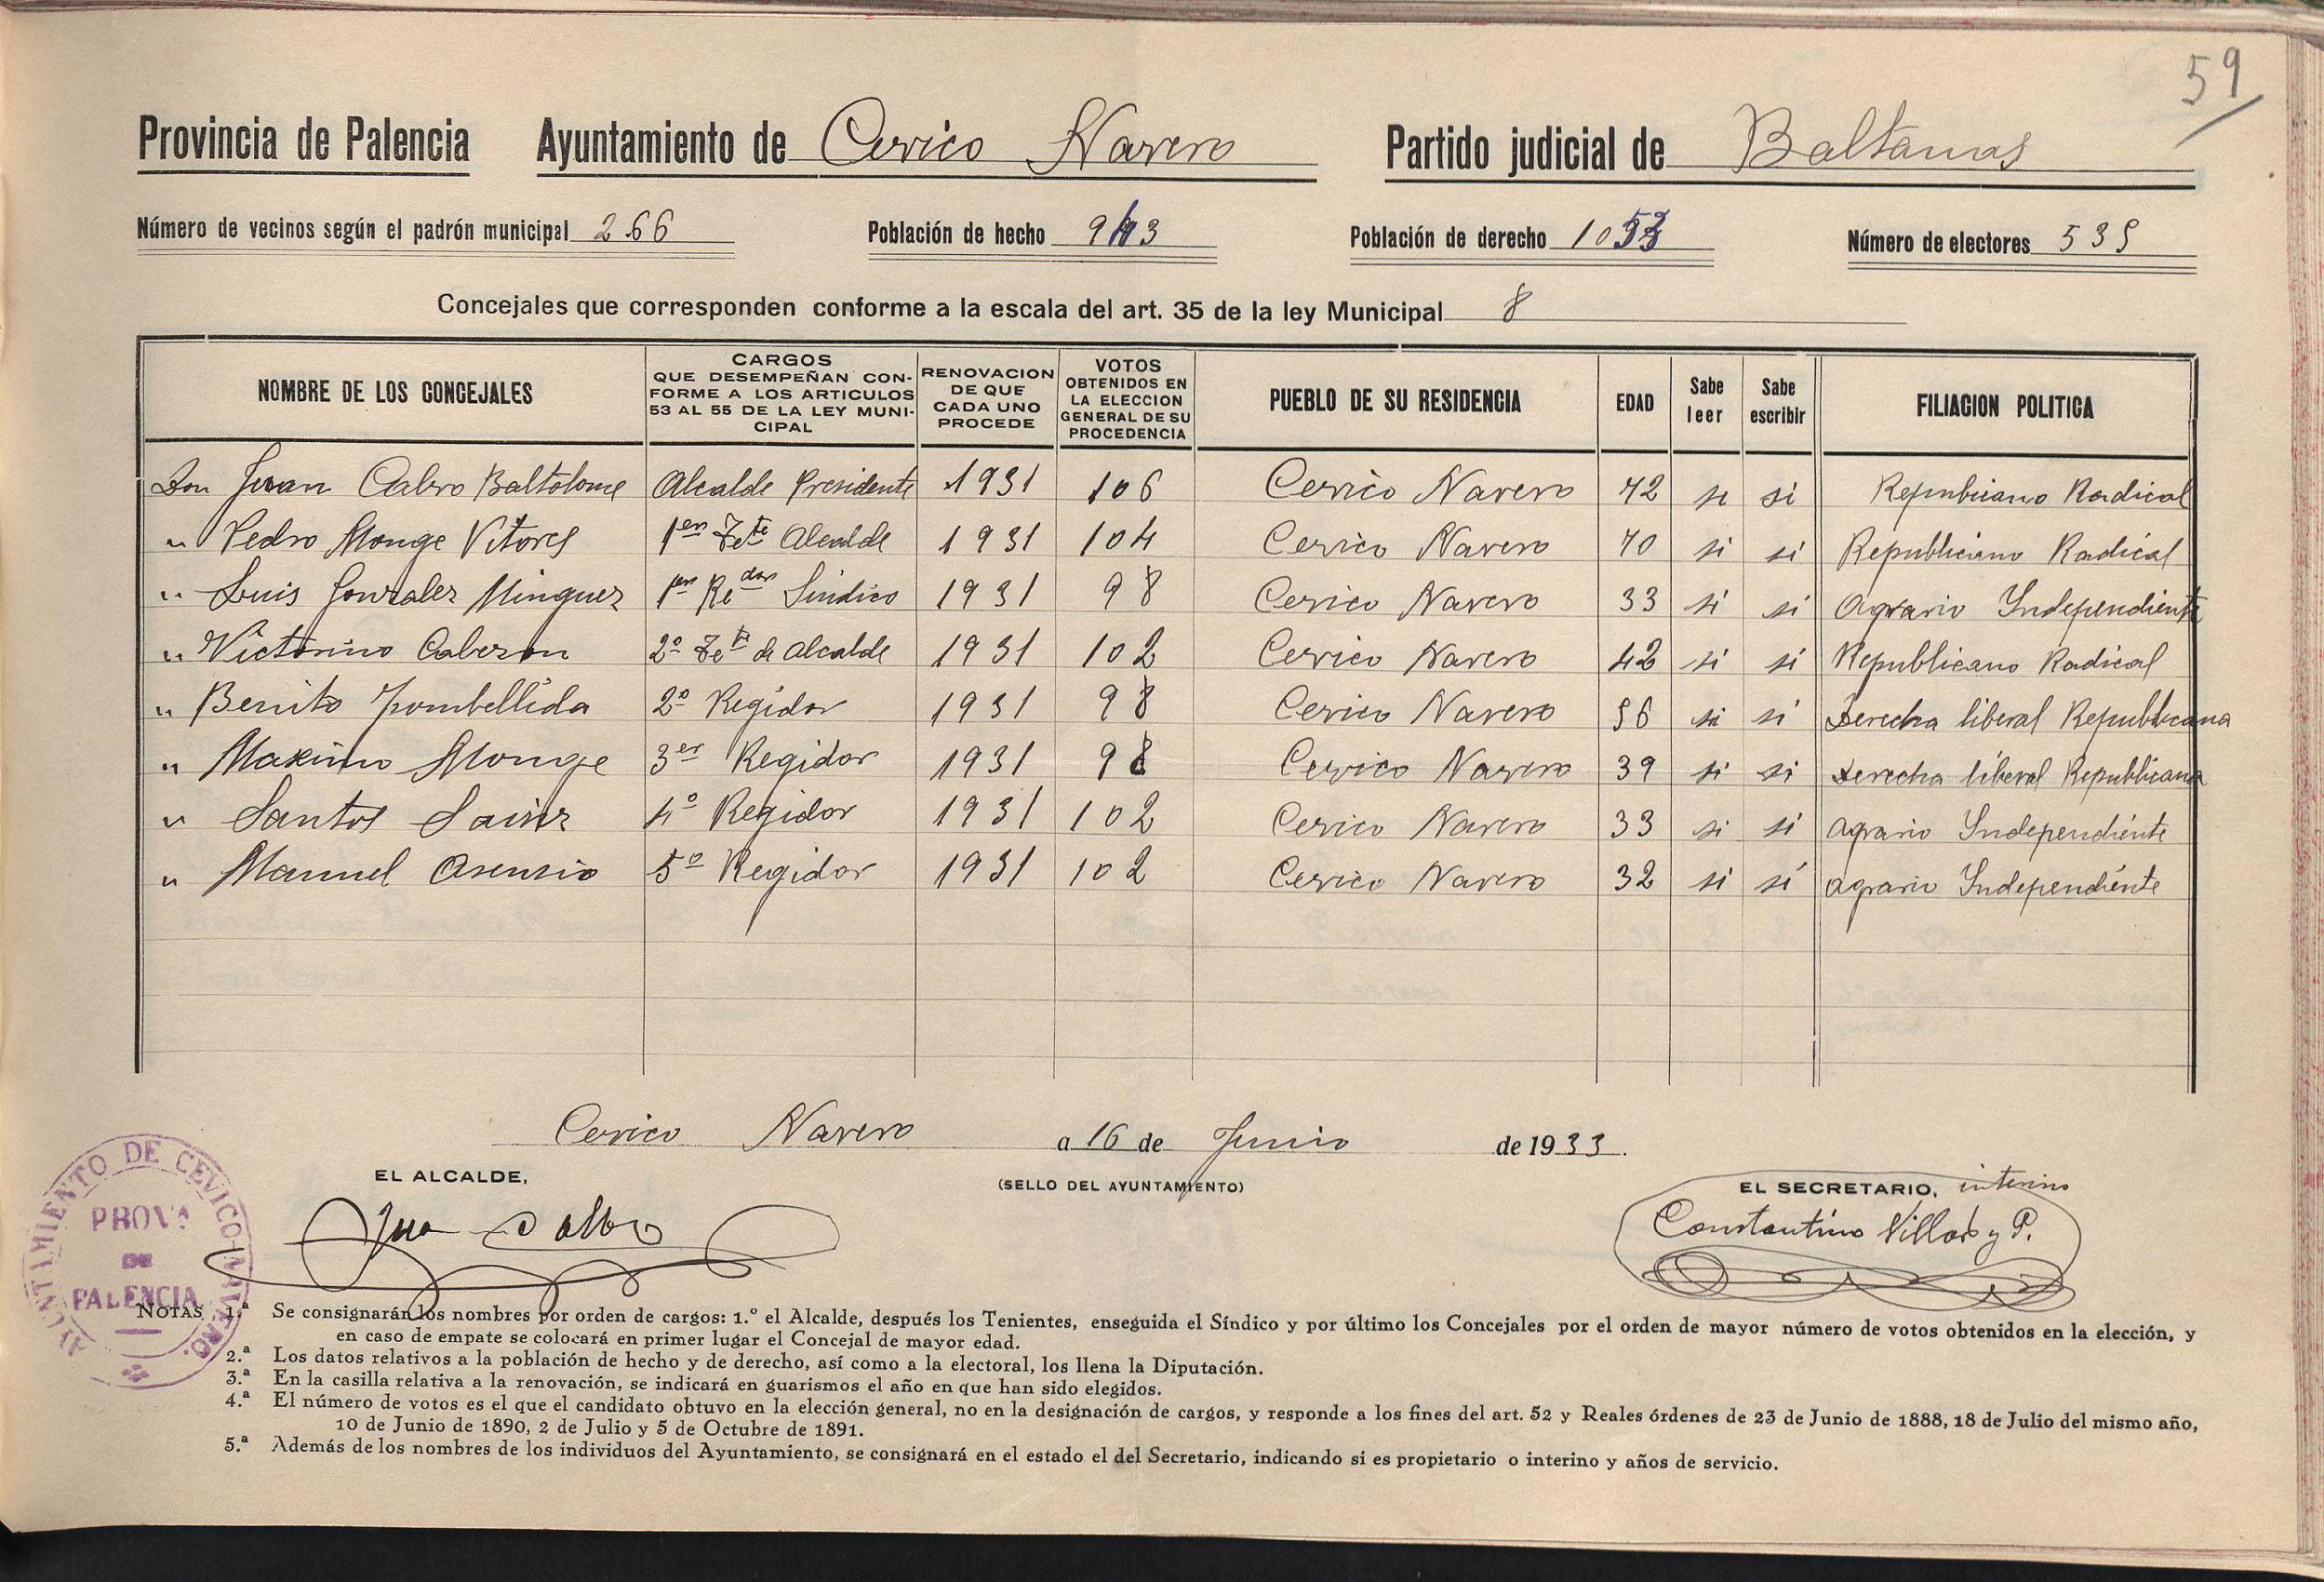 59
Provincia de Palencia Ayuntamiento de Cevico Navero Partido judicial de Baltanas
Número de vecinos según el padrón municipal 266 Población de hecho Población de derecho Número de electores 535
Concejales que corresponden conforme a la escala del art. 35 de la ley Municipal 8
NOMBRE DE LOS CONCEJALES CARGOS QUE DESEMPEÑAN CONFORME A LOS ARTICULOS 53 AL 55 DE LA LEY MUNICIPAL RENOVACION DE QUE CADA UNO PROCEDE VOTOS OBTENIDOS EN LA ELECCION GENERAL DE SU PROCEDENCIA PUEBLO DE SU RESIDENCIA EDAD Sabe leer Sabe escribir FILIACION POLITICA
Don Juan Calvo Baltolome Alcalde Presidente 1931 106 Cevico Navero 42 si si Republicano Radical
" Pedro Monge Vitores 1er Tete Alcalde 1931 104 Cevico Navero 40 si si Republicano Radical
" Luis Gonzalez Minguez 1er Redor Sindico 1931 98 Cevico Navero 33 si si Agrario Independiente
" Victorino Cabezon 2º Tete de Alcalde 1931 102 Cevico Navero 42 si si Republicano Radical
" Benito Pombellida 2º Regidor 1931 98 Cevico Navero 56 si si Derecha liberal Republicana
" Maximo Monge 3er Regidor 1931 98 Cevico Navero 39 si si Derecha liberal Republicana
" Santos Sainz 4º Regidor 1931 102 Cevico Navero 33 si si Agrario Independiente
" Manuel Asensio 5º Regidor 1931 102 Cevico Navero 32 si si Agrario Independiente
Cevico Navero a 16 de Junio de 1933.
EL ALCALDE, (SELLO DEL AYUNTAMIENTO) EL SECRETARIO, interino
Juan Calvo Constantino Villar y P.
AYUNTAMIENTO DE CEVICO-NAVERO.
PROVA
DE
PALENCIA
NOTAS 1.ª Se consignarán los nombres por orden de cargos: 1.º el Alcalde, después los Tenientes, enseguida el Síndico y por último los Concejales por el orden de mayor número de votos obtenidos en la elección, y
en caso de empate se colocará en primer lugar el Concejal de mayor edad.
2.ª Los datos relativos a la población de hecho y de derecho, así como a la electoral, los llena la Diputación.
3.ª En la casilla relativa a la renovación, se indicará en guarismos el año en que han sido elegidos.
4.ª El número de votos es el que el candidato obtuvo en la elección general, no en la designación de cargos, y responde a los fines del art. 52 y Reales órdenes de 23 de Junio de 1888, 18 de Julio del mismo año,
10 de Junio de 1890, 2 de Julio y 5 de Octubre de 1891.
5.ª Además de los nombres de los individuos del Ayuntamiento, se consignará en el estado el del Secretario, indicando si es propietario o interino y años de servicio.